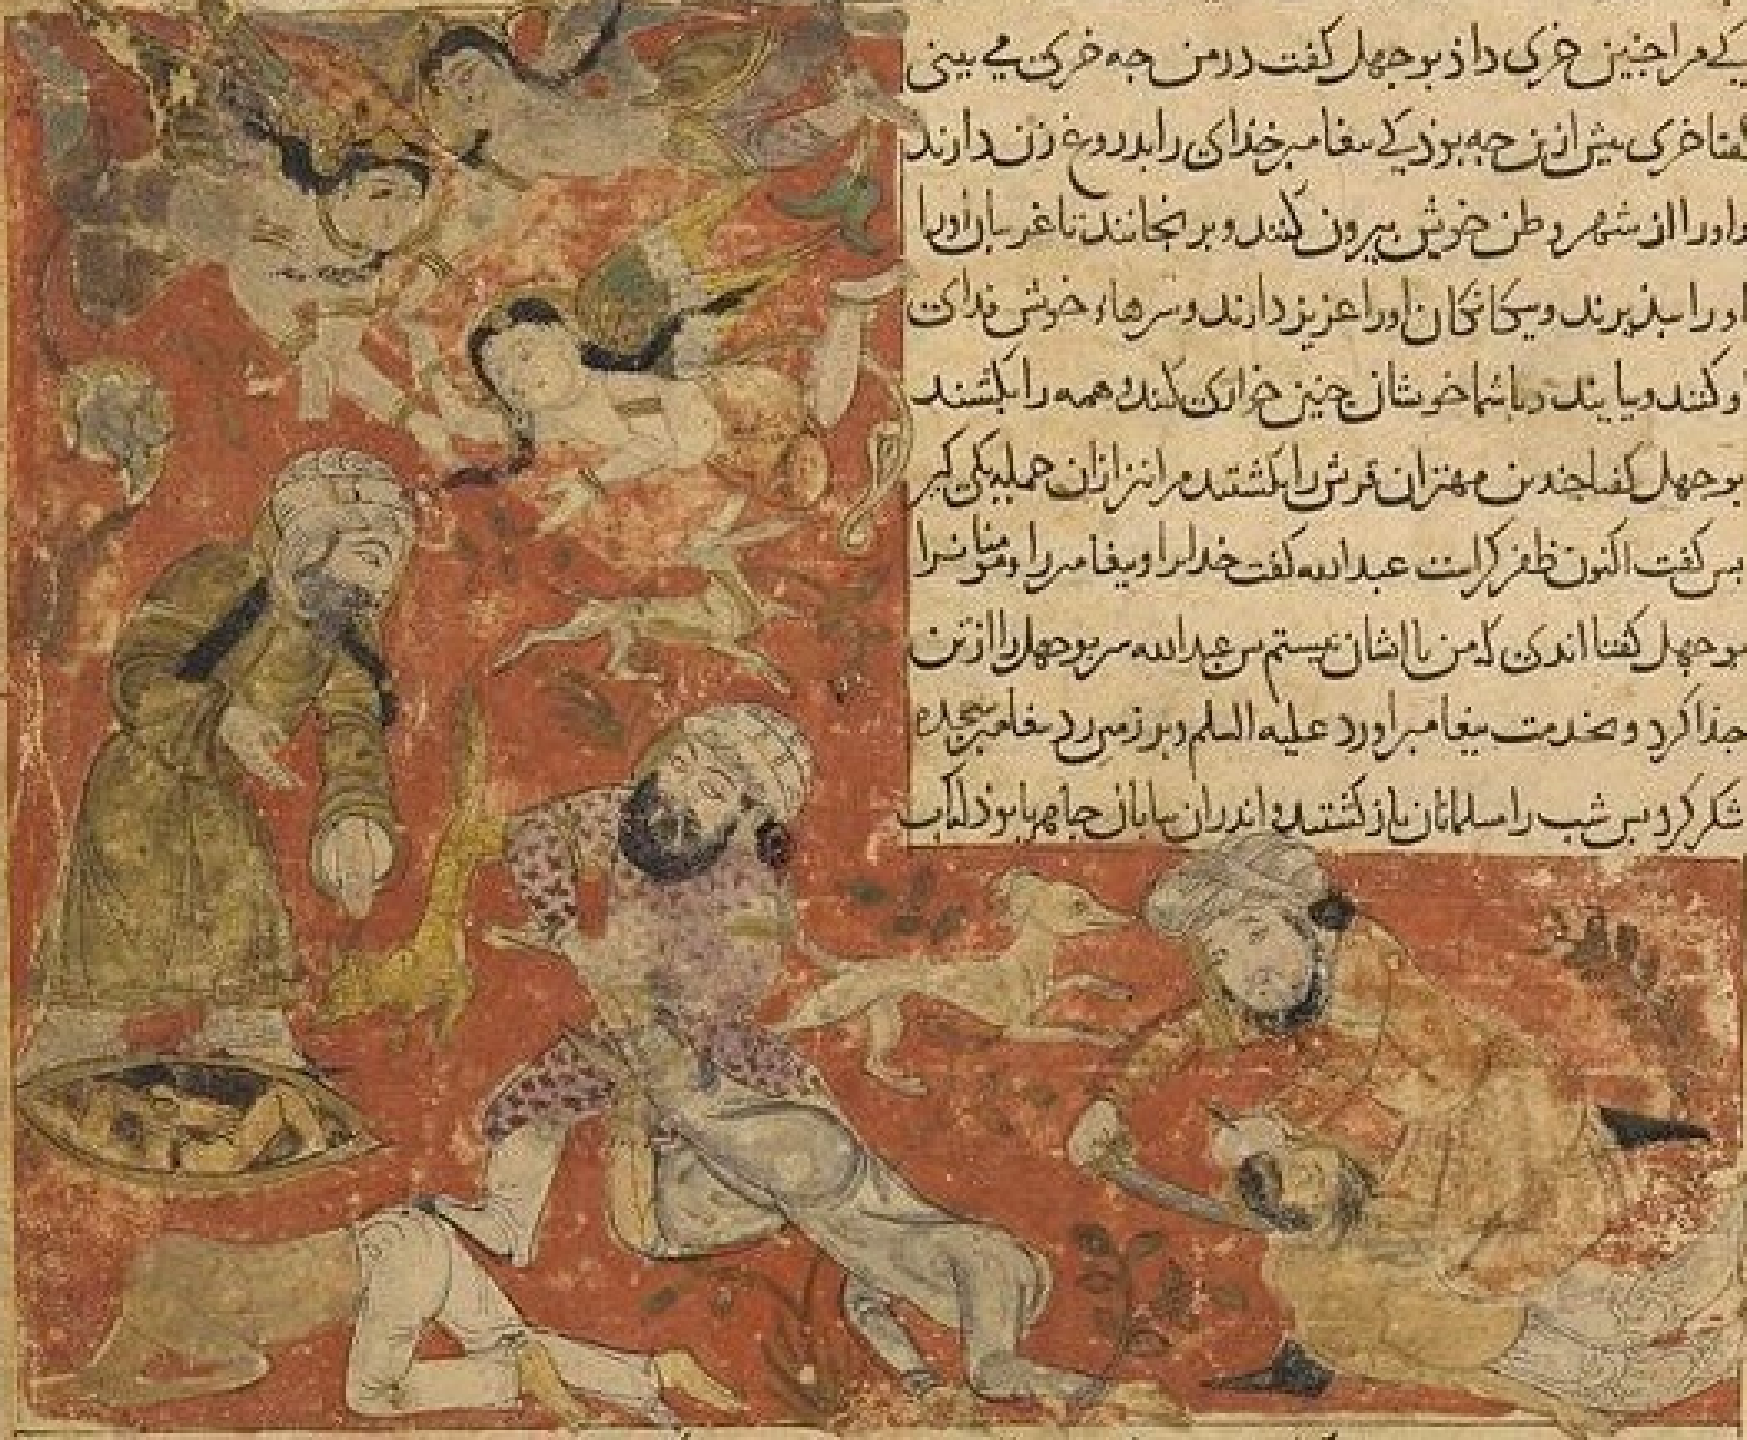 کی مرا جنین خری داذ بوجهل کفت در من جه خری می بینی
کفتا خری بیش ازین جه بوذ کی بیغامبر خذای را بدروغ زن دارند
و او را از شهر و طن خویش بیرون کنند و برنجانند تا غریبان او را
او را ببذیرند و بیکانکان او را عزیز دارند و سرهاء خویش فدای
او کنند و بیایند و با شما خویشان جنین خواری کنند و همه را بکشند
بوجهل کفتا جندین مهتران قریش را بکشتند مرا نیز از آن جمله یکی کیر
بس کفت اکنون ظفر کراست عبدالله کفت خدایرا و بیغامبر را و مومنانرا
بوجهل کفتا اندی کی من با ایشان نیستم بس عبدالله سر بوجهل را از تن
جذا کرد و بخدمت بیغامبر اورد علیه السلم و بر زمین زد بیغامبر سجده
شکر کرد و بس شب را مسلمانان باز کشتند و اندران بیابان جاهها بوذ